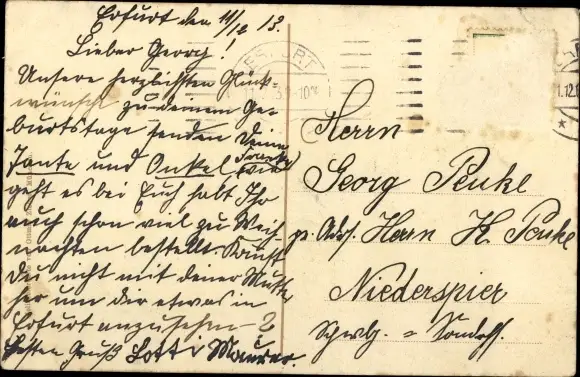 Erfurt den 11/12 13.
Lieber Georg!
Unsere herzlichsten Glück-
wünsche zu deinem Ge-
burtstage senden Deine
Tante und Onkel wie
geht es bei Euch habt Ihr
auch schon viel zu Weih-
nachten bestellt. Kannst
Du nicht mit deiner Mutter
her um dir etwas in
Erfurt anzusehen?
Besten Gruß Lotti Maurer.
ERFURT
Herrn
Georg Penke
pr. Adr. Herrn K. Penke
Niederspier
Schwbg. = Sondersh.